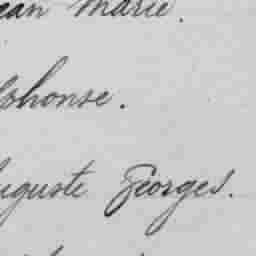 ean Marie.
lphonse.
uguste Georges.